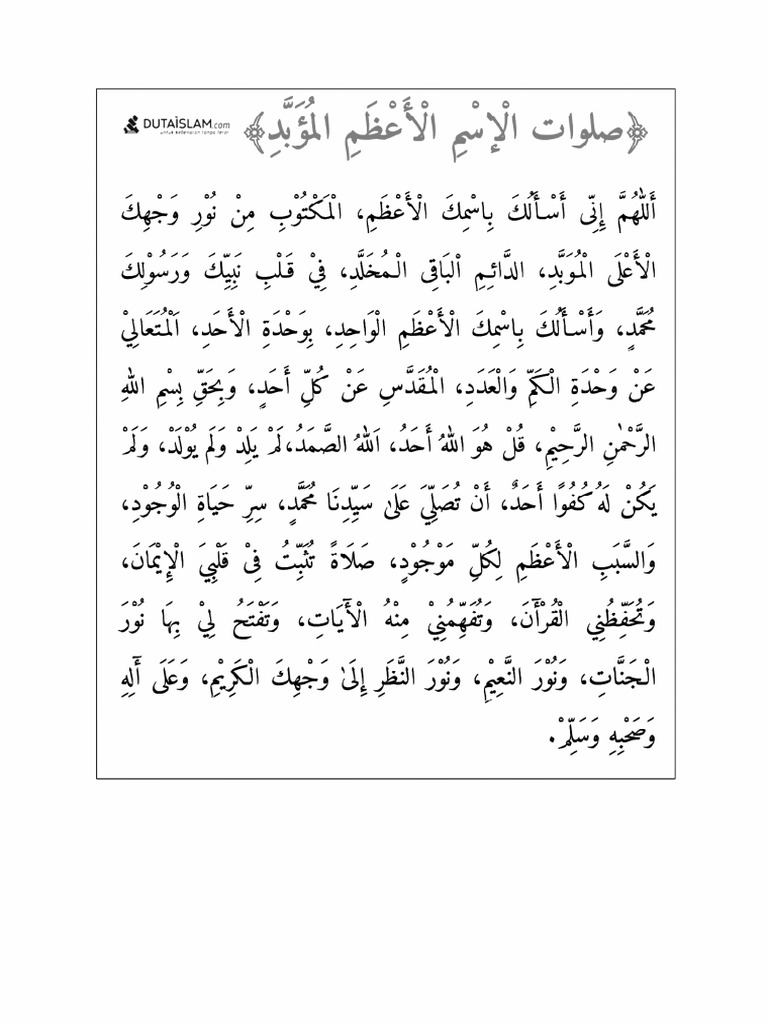 ﴿صلوات الْإِسْمِ الْأَعْظَمِ الْمُؤَبَّدِ﴾
DUTAISLAM.com
untuk kebenaran tanpa teror
أَللّٰهُمَّ إِنِّى أَسْأَلُكَ بِاسْمِكَ الْأَعْظَمِ، الْمَكْتُوْبِ مِنْ نُوْرِ وَجْهِكَ
الْأَعْلَى الْمُوَبَّدِ، الدَّائِمِ اْلبَاقِى الْمُخَلَّدِ، فِيْ قَلْبِ نَبِيِّكَ وَرَسُوْلِكَ
مُحَمَّدٍ، وَأَسْأَلُكَ بِاسْمِكَ الْأَعْظَمِ الْوَاحِدِ، بِوَحْدَةِ الْأَحَدِ، اَلْمُتَعَالِيْ
عَنْ وَحْدَةِ الْكَمِّ وَالْعَدَدِ، الْمُقَدَّسِ عَنْ كُلِّ أَحَدٍ، وَبِحَقِّ بِسْمِ اللهِ
الرَّحْمٰنِ الرَّحِيْمِ، قُلْ هُوَ اللهُ أَحَدُ، اَللهُ الصَّمَدُ،لَمْ يَلِدْ وَلَم يُوْلَدْ، وَلَمْ
يَكُنْ لَهُ كُفُوًا أَحَدٌ، أَنْ تُصَلِّيَ عَلَى سَيِّدِنَا مُحَمَّدٍ، سِرِّ حَيَاةِ الْوُجُوْدِ،
وَالسَّبَبِ الْأَعْظَمِ لِكُلِّ مَوْجُوْدٍ، صَلَاةً تُثَبِّتُ فِىْ قَلْبِيَ الْإِيْمَانَ،
وَتُحَفِّظُنِي الْقُرْآنَ، وَتُفَهِّمُنِيْ مِنْهُ الْأٓيَاتِ، وَتَفْتَحُ لِيْ بِهَا نُوْرَ
الْجَنَّاتِ، وَنُوْرَ النَّعِيْمِ، وَنُوْرَ النَّظَرِ إِلَىٰ وَجْهِكَ الْكَرِيْمِ، وَعَلَى أٓلِهِ
وَصَحْبِهِ وَسَلِّمْ.